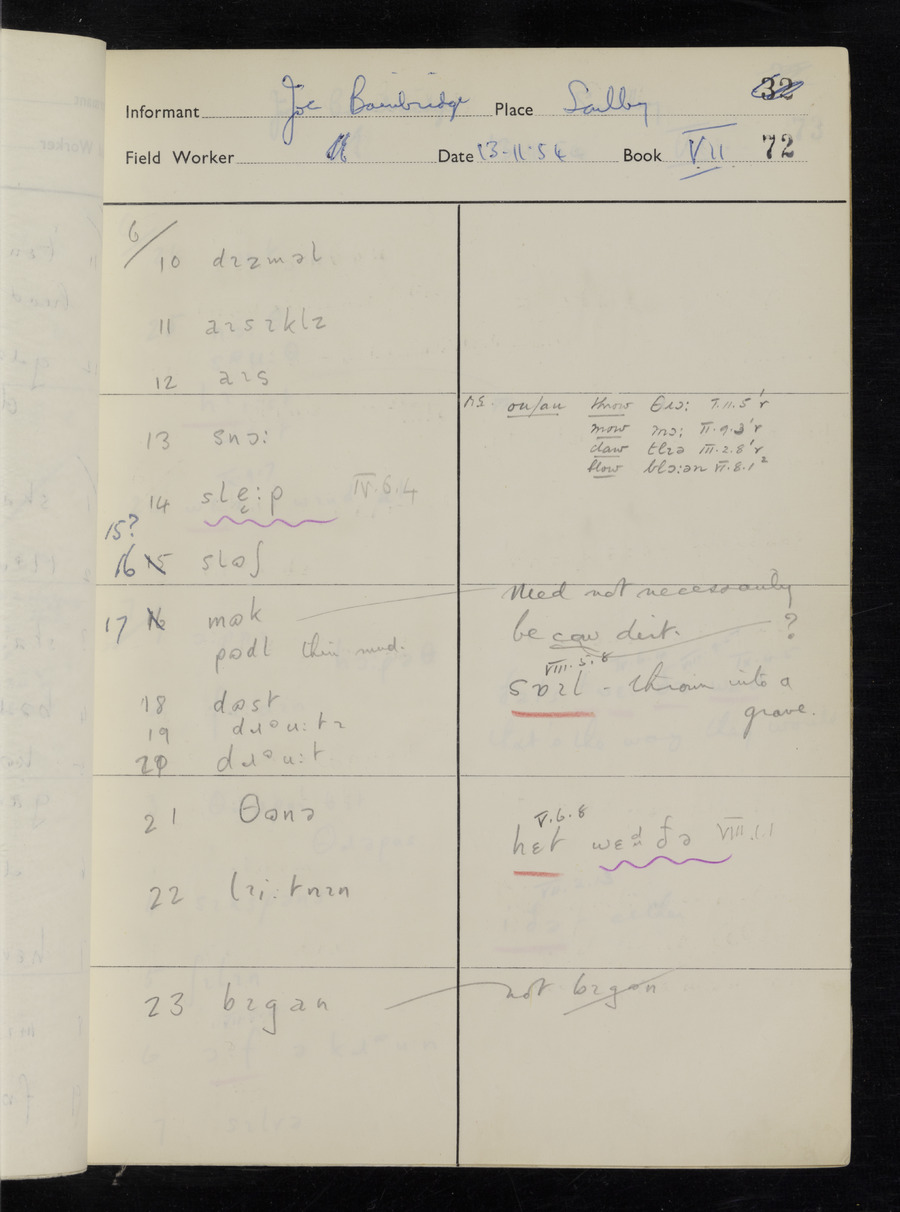 32
Informant Joe Bainbridge Place Soulby
Field Worker Date 13-11-54 Book VII 72
6/
10 dɹɪzməl
11 aɪsɪklz
12 aɪs
13 snɔ:
14 sle̜:p IV.6.4
15?
16 15 slɵʃ
17 16 mɵk
pɵdl thin mud.
18 dɵst
19 dɹəu:tɪ
20 dɹəu:t
21 θɵnə
22 lɪi:tnɪn
23 bɪgan
N.S. ou/au throw θɹɔ: I.11.5'r
mow mɔ: II.9.3'r
claw III.2.8'r
blow blɔ:ən VI.8.1²
Need not necessarily
be cow dirt. ?
VIII.5.8
sɒɪl - thrown into a
grave.
V.6.8
hɛt wɛðə VIII.1.1
not bɪgɵn